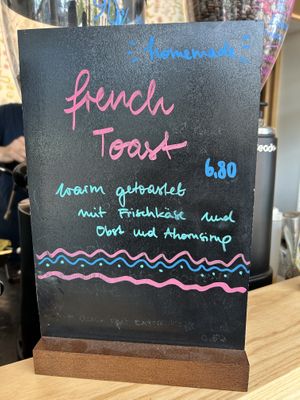 homemade
french
Toast
6,80
warm getoastet
mit Frischkäse und
Obst und Ahornsirup